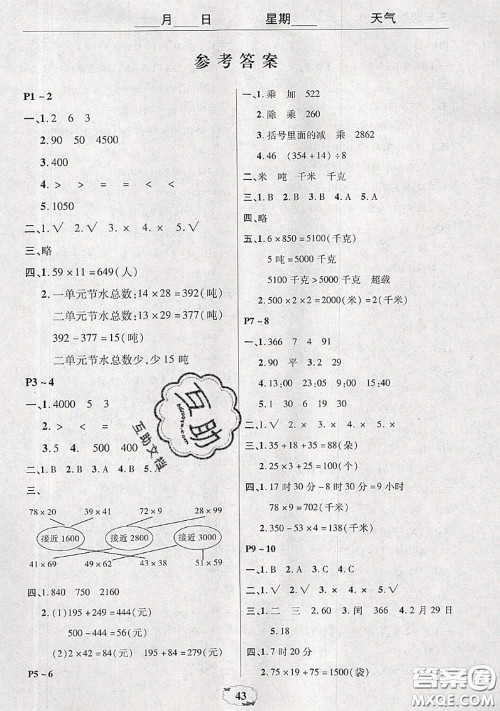 ____月____日 星期____ 天气____
参考答案
P1~2
一、1. 2 6 3
2. 90 50 4500
3. 400
4. > > = < = <
5. 1050
二、1. √ 2. × 3. × 4. √ 5. √
三、略
四、1. 59×11=649(人)
2. 一单元节水总数:14×28=392(吨)
二单元节水总数:13×29=377(吨)
392-377=15(吨)
二单元节水总数少,少15吨
P3~4
一、1. 4000 5 3
2. > < = >
3. 5 4. 500 400
二、1. B 2. B 3. A
三、
78×20 39×41 72×41 69×29
接近1600 接近2800 接近3000
48×31 68×39 41×71 51×59
四、1. 840 750 2160
2. (1)195+249=444(元)
500-444=56(元)
(2)2×42=84(元)
P5~6
一、1. 乘 加 522
2. 除 乘 260
3. 括号里面的减 乘 2862
4. 46 (354+14)÷8
二、米 吨 千米 千克
三、1. B 2. B 3. A 4. B 5. A
四、略
五、1. 6×850=5100(千克)
5吨=5000(千克)
5100千克>5000千克 超载
2. 500×2×2=2000(米)=2(千米)
P7~8
一、1. 366 7 4 91
2. 90 平 3. 2 29
4. 13:00 18:25 19:30 23:15
5. 1 30 6. 19
二、1. × 2. √ 3. × 4. × 5. √
三、1. 35+18+35=88(朵)
2. 25×3+25=100(个)
四、1. 17时30分-8时30分=9小时
78×9=702(千米)
2. 350-53×5=85(千米)
P9~10
一、1. × 2. √ 3. √ 4. × 5. √
二、1. B 2. B 3. B 4. C
三、1. 二 三 2. 60 3. 闰 366 4. 2月29日
5. 18
四、1. 7时20分
2. 75×19+75=1500(袋)
43
互助
互助文档
答案圈
MXQE.COM